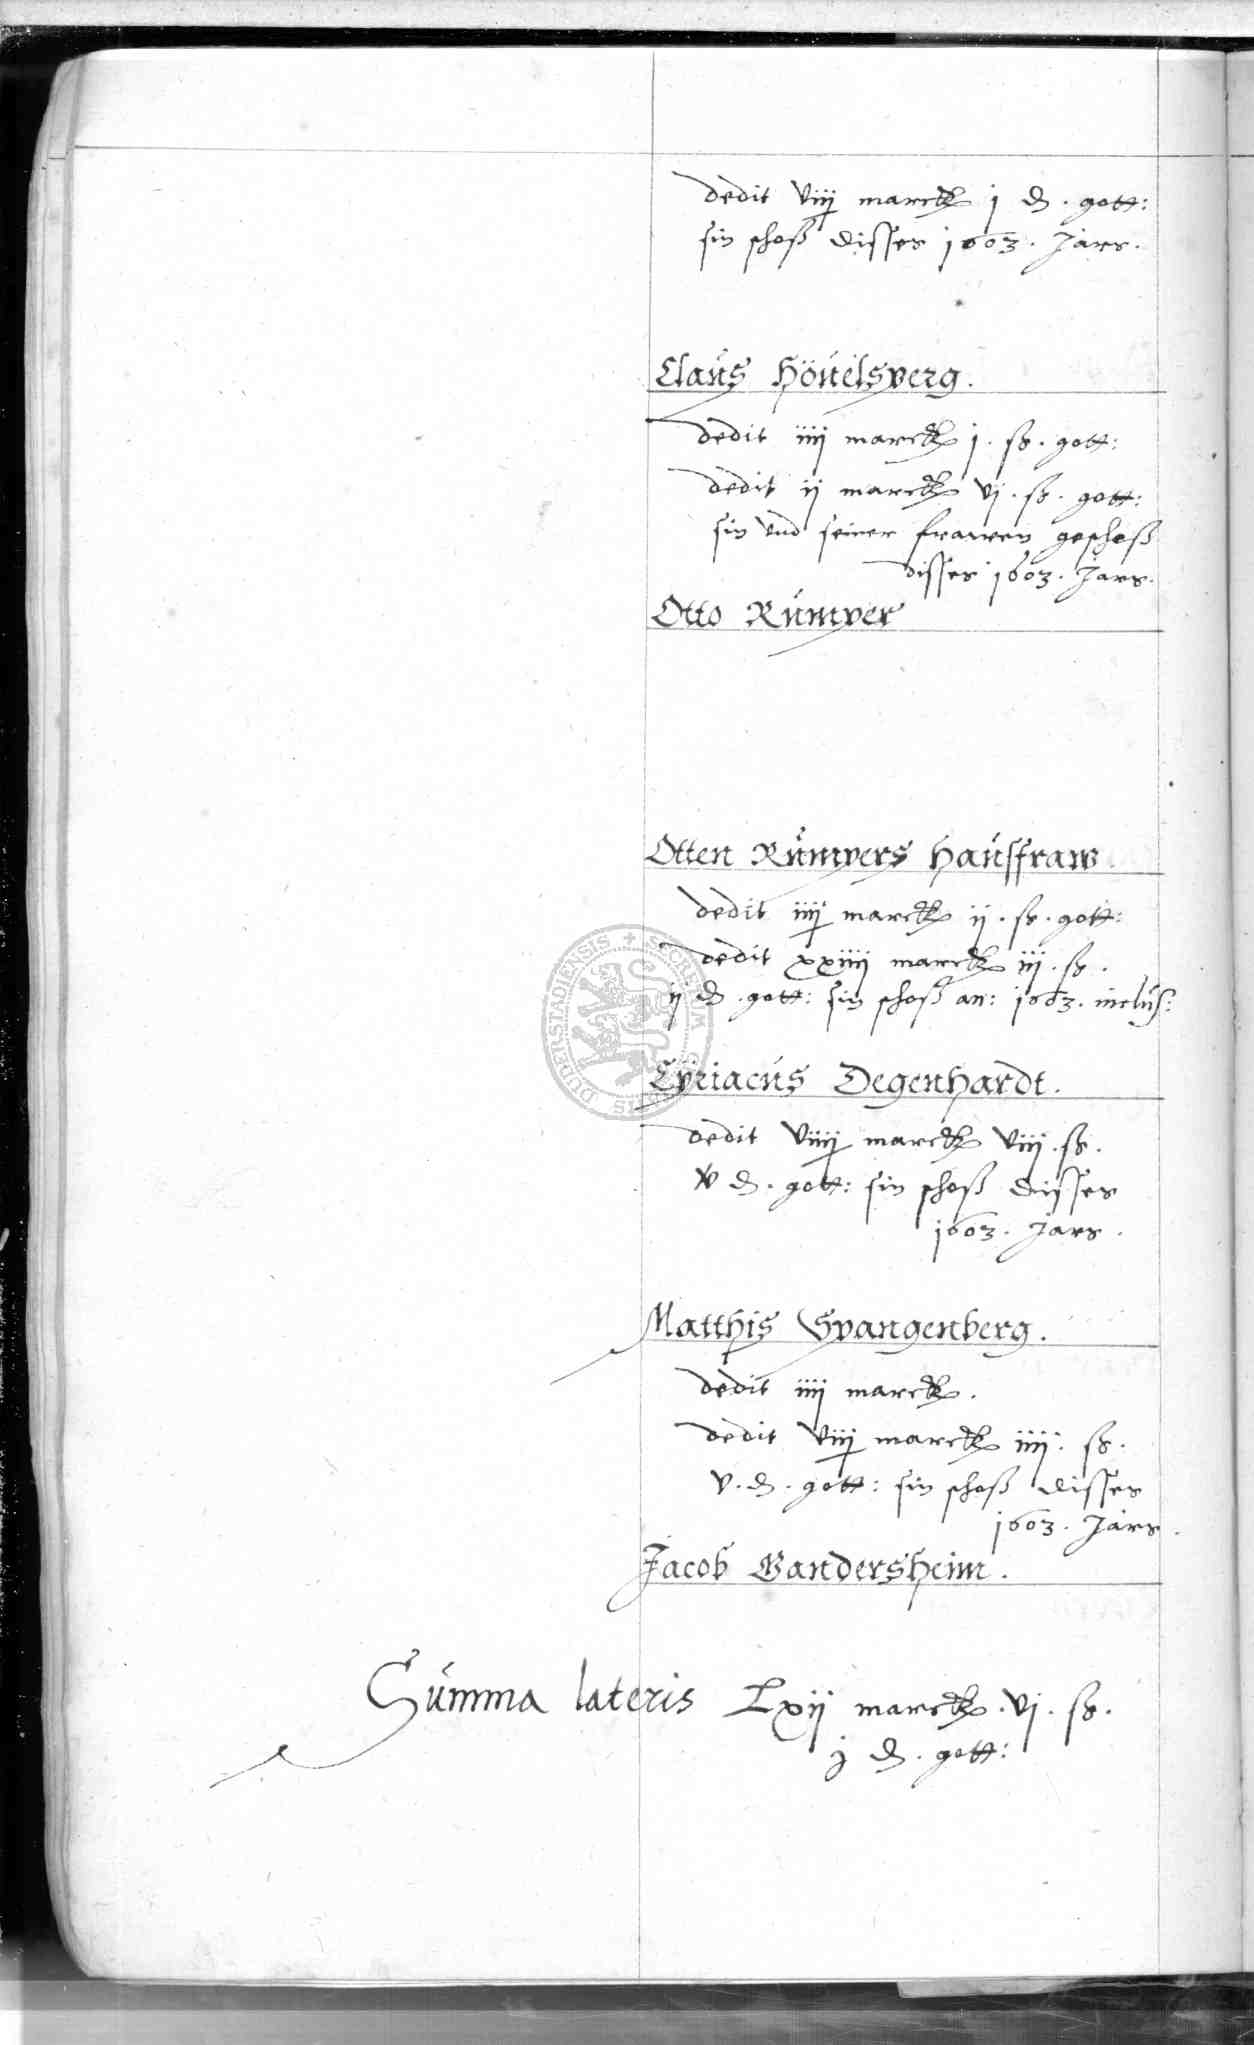 dedit viij marck j d. gott:
sin schoß disses 1603. Jars.
Claus Hövelsperg.
dedit iiij marck j. ß. gott:
dedit ij marck vj. ß. gott:
sin und seiner frawen geschoß
disses 1603. Jars.
Otto Rümper
Otten Rümpers Haußfraw.
dedit iiij marck ij. ß. gott:
dedit xxiiij marck iij. ß.
ij d. gott: sin schoß an: 1603. inclus:
Cyriacus Degenhardt.
dedit viiij marck viij. ß.
v d. gott: sin schoß disses
1603. Jars.
Matthis Spangenberg.
dedit iiij marck.
dedit viij marck iiij. ß.
v. d. gott: sin schoß disses
1603. Jars.
Jacob Gandersheim.
Summa lateris Lxij marck. vj. ß.
j d. gott:
SECRETUM
DUDERSTADIENSIS